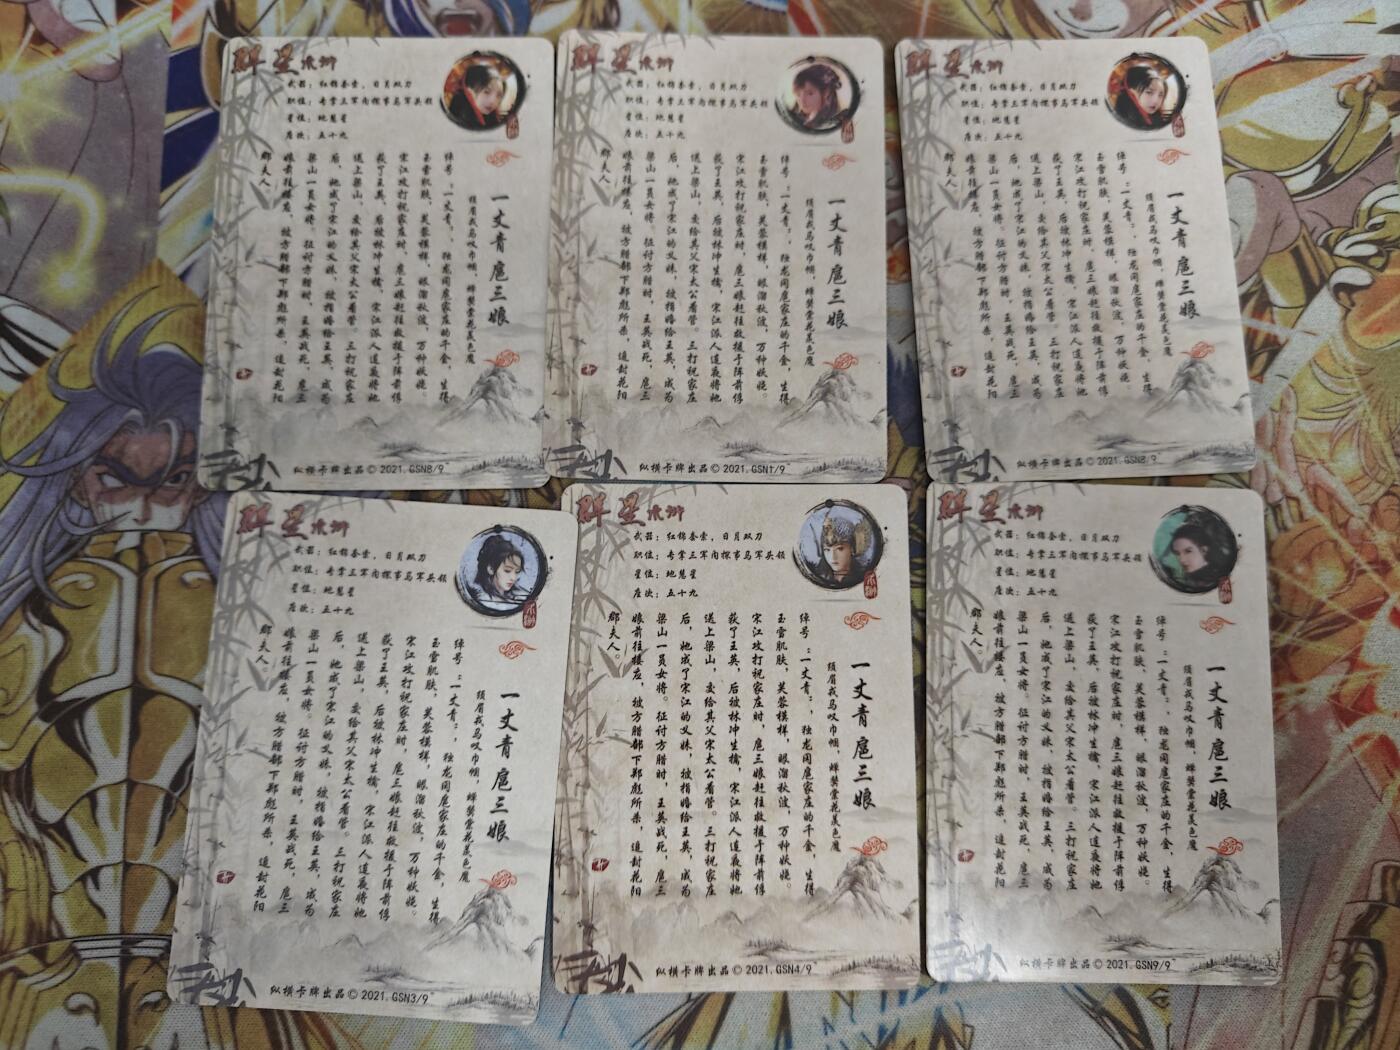 群星水浒
武器：红锦套索，日月双刀
职位：专掌三军内探事马军头领
星位：地慧星
座次：五十九
一丈青 扈三娘
须眉戎马叹巾帼，蝉鬓棠花羡色魔
绰号：一丈青：，独龙冈扈家庄的千金，生得
玉雪肌肤，芙蓉模样，眼溜秋波，万种妖娆。
宋江攻打祝家庄时，扈三娘赶往救援于阵前俘
获了王英，后被林冲生擒，宋江派人连夜将她
送上梁山，交给其父宋太公看管。三打祝家庄
后，她成了宋江的义妹，被指婚给王英，成为
梁山一员女将。征讨方腊时，王英战死，扈三
娘前往接应，被方腊部下郑彪所杀，追封花阳
郡夫人。
纵横卡牌出品©2021.GSN8/9
群星水浒
武器：红锦套索，日月双刀
职位：专掌三军内探事马军头领
星位：地慧星
座次：五十九
一丈青 扈三娘
须眉戎马叹巾帼，蝉鬓棠花羡色魔
绰号：一丈青：，独龙冈扈家庄的千金，生得
玉雪肌肤，芙蓉模样，眼溜秋波，万种妖娆。
宋江攻打祝家庄时，扈三娘赶往救援于阵前俘
获了王英，后被林冲生擒，宋江派人连夜将她
送上梁山，交给其父宋太公看管。三打祝家庄
后，她成了宋江的义妹，被指婚给王英，成为
梁山一员女将。征讨方腊时，王英战死，扈三
娘前往接应，被方腊部下郑彪所杀，追封花阳
郡夫人。
纵横卡牌出品©2021.GSN1/9
群星水浒
武器：红锦套索，日月双刀
职位：专掌三军内探事马军头领
星位：地慧星
座次：五十九
一丈青 扈三娘
须眉戎马叹巾帼，蝉鬓棠花羡色魔
绰号：一丈青：，独龙冈扈家庄的千金，生得
玉雪肌肤，芙蓉模样，眼溜秋波，万种妖娆。
宋江攻打祝家庄时，扈三娘赶往救援于阵前俘
获了王英，后被林冲生擒，宋江派人连夜将她
送上梁山，交给其父宋太公看管。三打祝家庄
后，她成了宋江的义妹，被指婚给王英，成为
梁山一员女将。征讨方腊时，王英战死，扈三
娘前往接应，被方腊部下郑彪所杀，追封花阳
郡夫人。
纵横卡牌出品©2021.GSN8/9
群星水浒
武器：红锦套索，日月双刀
职位：专掌三军内探事马军头领
星位：地慧星
座次：五十九
一丈青 扈三娘
须眉戎马叹巾帼，蝉鬓棠花羡色魔
绰号：一丈青：，独龙冈扈家庄的千金，生得
玉雪肌肤，芙蓉模样，眼溜秋波，万种妖娆。
宋江攻打祝家庄时，扈三娘赶往救援于阵前俘
获了王英，后被林冲生擒，宋江派人连夜将她
送上梁山，交给其父宋太公看管。三打祝家庄
后，她成了宋江的义妹，被指婚给王英，成为
梁山一员女将。征讨方腊时，王英战死，扈三
娘前往接应，被方腊部下郑彪所杀，追封花阳
郡夫人。
纵横卡牌出品©2021.GSN3/9
群星水浒
武器：红锦套索，日月双刀
职位：专掌三军内探事马军头领
星位：地慧星
座次：五十九
一丈青 扈三娘
须眉戎马叹巾帼，蝉鬓棠花羡色魔
绰号：一丈青：，独龙冈扈家庄的千金，生得
玉雪肌肤，芙蓉模样，眼溜秋波，万种妖娆。
宋江攻打祝家庄时，扈三娘赶往救援于阵前俘
获了王英，后被林冲生擒，宋江派人连夜将她
送上梁山，交给其父宋太公看管。三打祝家庄
后，她成了宋江的义妹，被指婚给王英，成为
梁山一员女将。征讨方腊时，王英战死，扈三
娘前往接应，被方腊部下郑彪所杀，追封花阳
郡夫人。
纵横卡牌出品©2021.GSN4/9
群星水浒
武器：红锦套索，日月双刀
职位：专掌三军内探事马军头领
星位：地慧星
座次：五十九
一丈青 扈三娘
须眉戎马叹巾帼，蝉鬓棠花羡色魔
绰号：一丈青：，独龙冈扈家庄的千金，生得
玉雪肌肤，芙蓉模样，眼溜秋波，万种妖娆。
宋江攻打祝家庄时，扈三娘赶往救援于阵前俘
获了王英，后被林冲生擒，宋江派人连夜将她
送上梁山，交给其父宋太公看管。三打祝家庄
后，她成了宋江的义妹，被指婚给王英，成为
梁山一员女将。征讨方腊时，王英战死，扈三
娘前往接应，被方腊部下郑彪所杀，追封花阳
郡夫人。
纵横卡牌出品©2021.GSN9/9